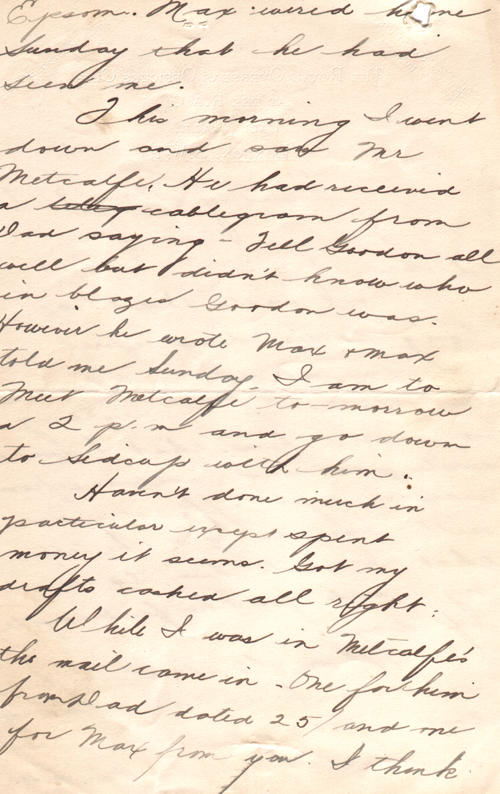 Epsom. Max wired home
Sunday that he had
seen me.
This morning I went
down and saw Mr
Metcalfe. He had received
a cablegram from
Dad saying - Tell Gordon all
well but didn't know who
in blazes Gordon was.
However he wrote Max & Max
told me Sunday. I am to
Meet Metcalfe to-morrow
a 2 p.m and go down
to Sidcup with him.
Haven't done much in
particular except spent
money it seems. Got my
drafts cashed all right.
While I was in Metcalfe's
the mail came in - One for him
from Dad dated 25/ and one
for Max from you. I think